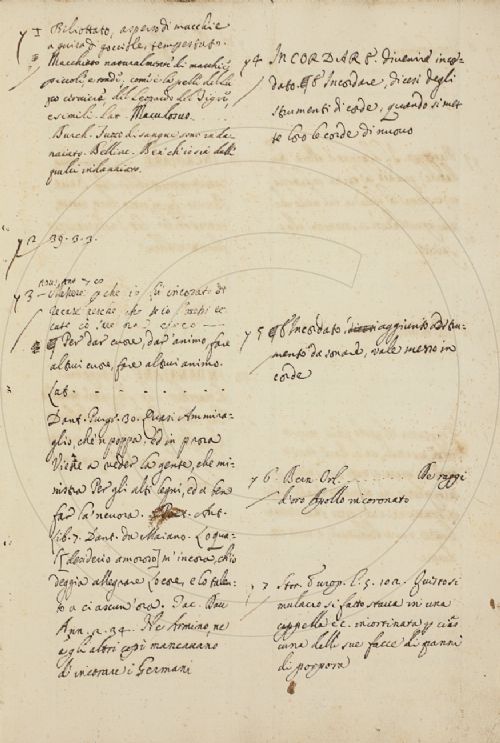 y 1 Biliottato, asperso di macchie
a guisa di goccisle, tempestato.
Macchiato naturalmente di macchie
piccole e rondi, com'è la pelle della
del Leopardo del Tigri,
e simili. Lat. Maculosus.
Burch. Succo di sangue
naiato. Bellinc. Ben ch'ie sia dall
y 2 39. 3. 3.
y 3
che io fui incorato di
¶ Per dar cuore, dar animo, fare
altrui cuore, fare altrui animo.
Lat.
Dant. Purg. 30. Quasi Ammira-
glio, che 'n poppa, ed in prora
Viene a veder la gente, che mi-
nistra Per gli alti legni, ed a ben
far la 'ncuora. Rim. Ant.
lib. 7. Dant. da Maiano. Lo qua-
l [desiderio amoroso] m'incora, ch'io
deggia allegrare Lo core, e lo talen-
to a ciascun'ora. Tac. Dav.
Ann. 2. 34. Ne Arminio, ne
agli altri capi mancavano
d'incorare i Germani
y 4 INCORDARE. divenire incor-
dato. ¶ Incordare, dicesi degli
strumenti di corde, quando si met-
te loro le corde di nuovo
y 5 ¶ Incordato, aggiunto a Stru-
mento da sonare, vale messo in
corde
y 6 Bern. Orl. . . . . . . De raggi
d'oro Apollo incoronato
y 7 Stor. Europ. l. 5. 102. Questo si
mulacro si fatto stava in una
cappella &c. incortinata per cias
cuna delle sue facce di panni
di porpora